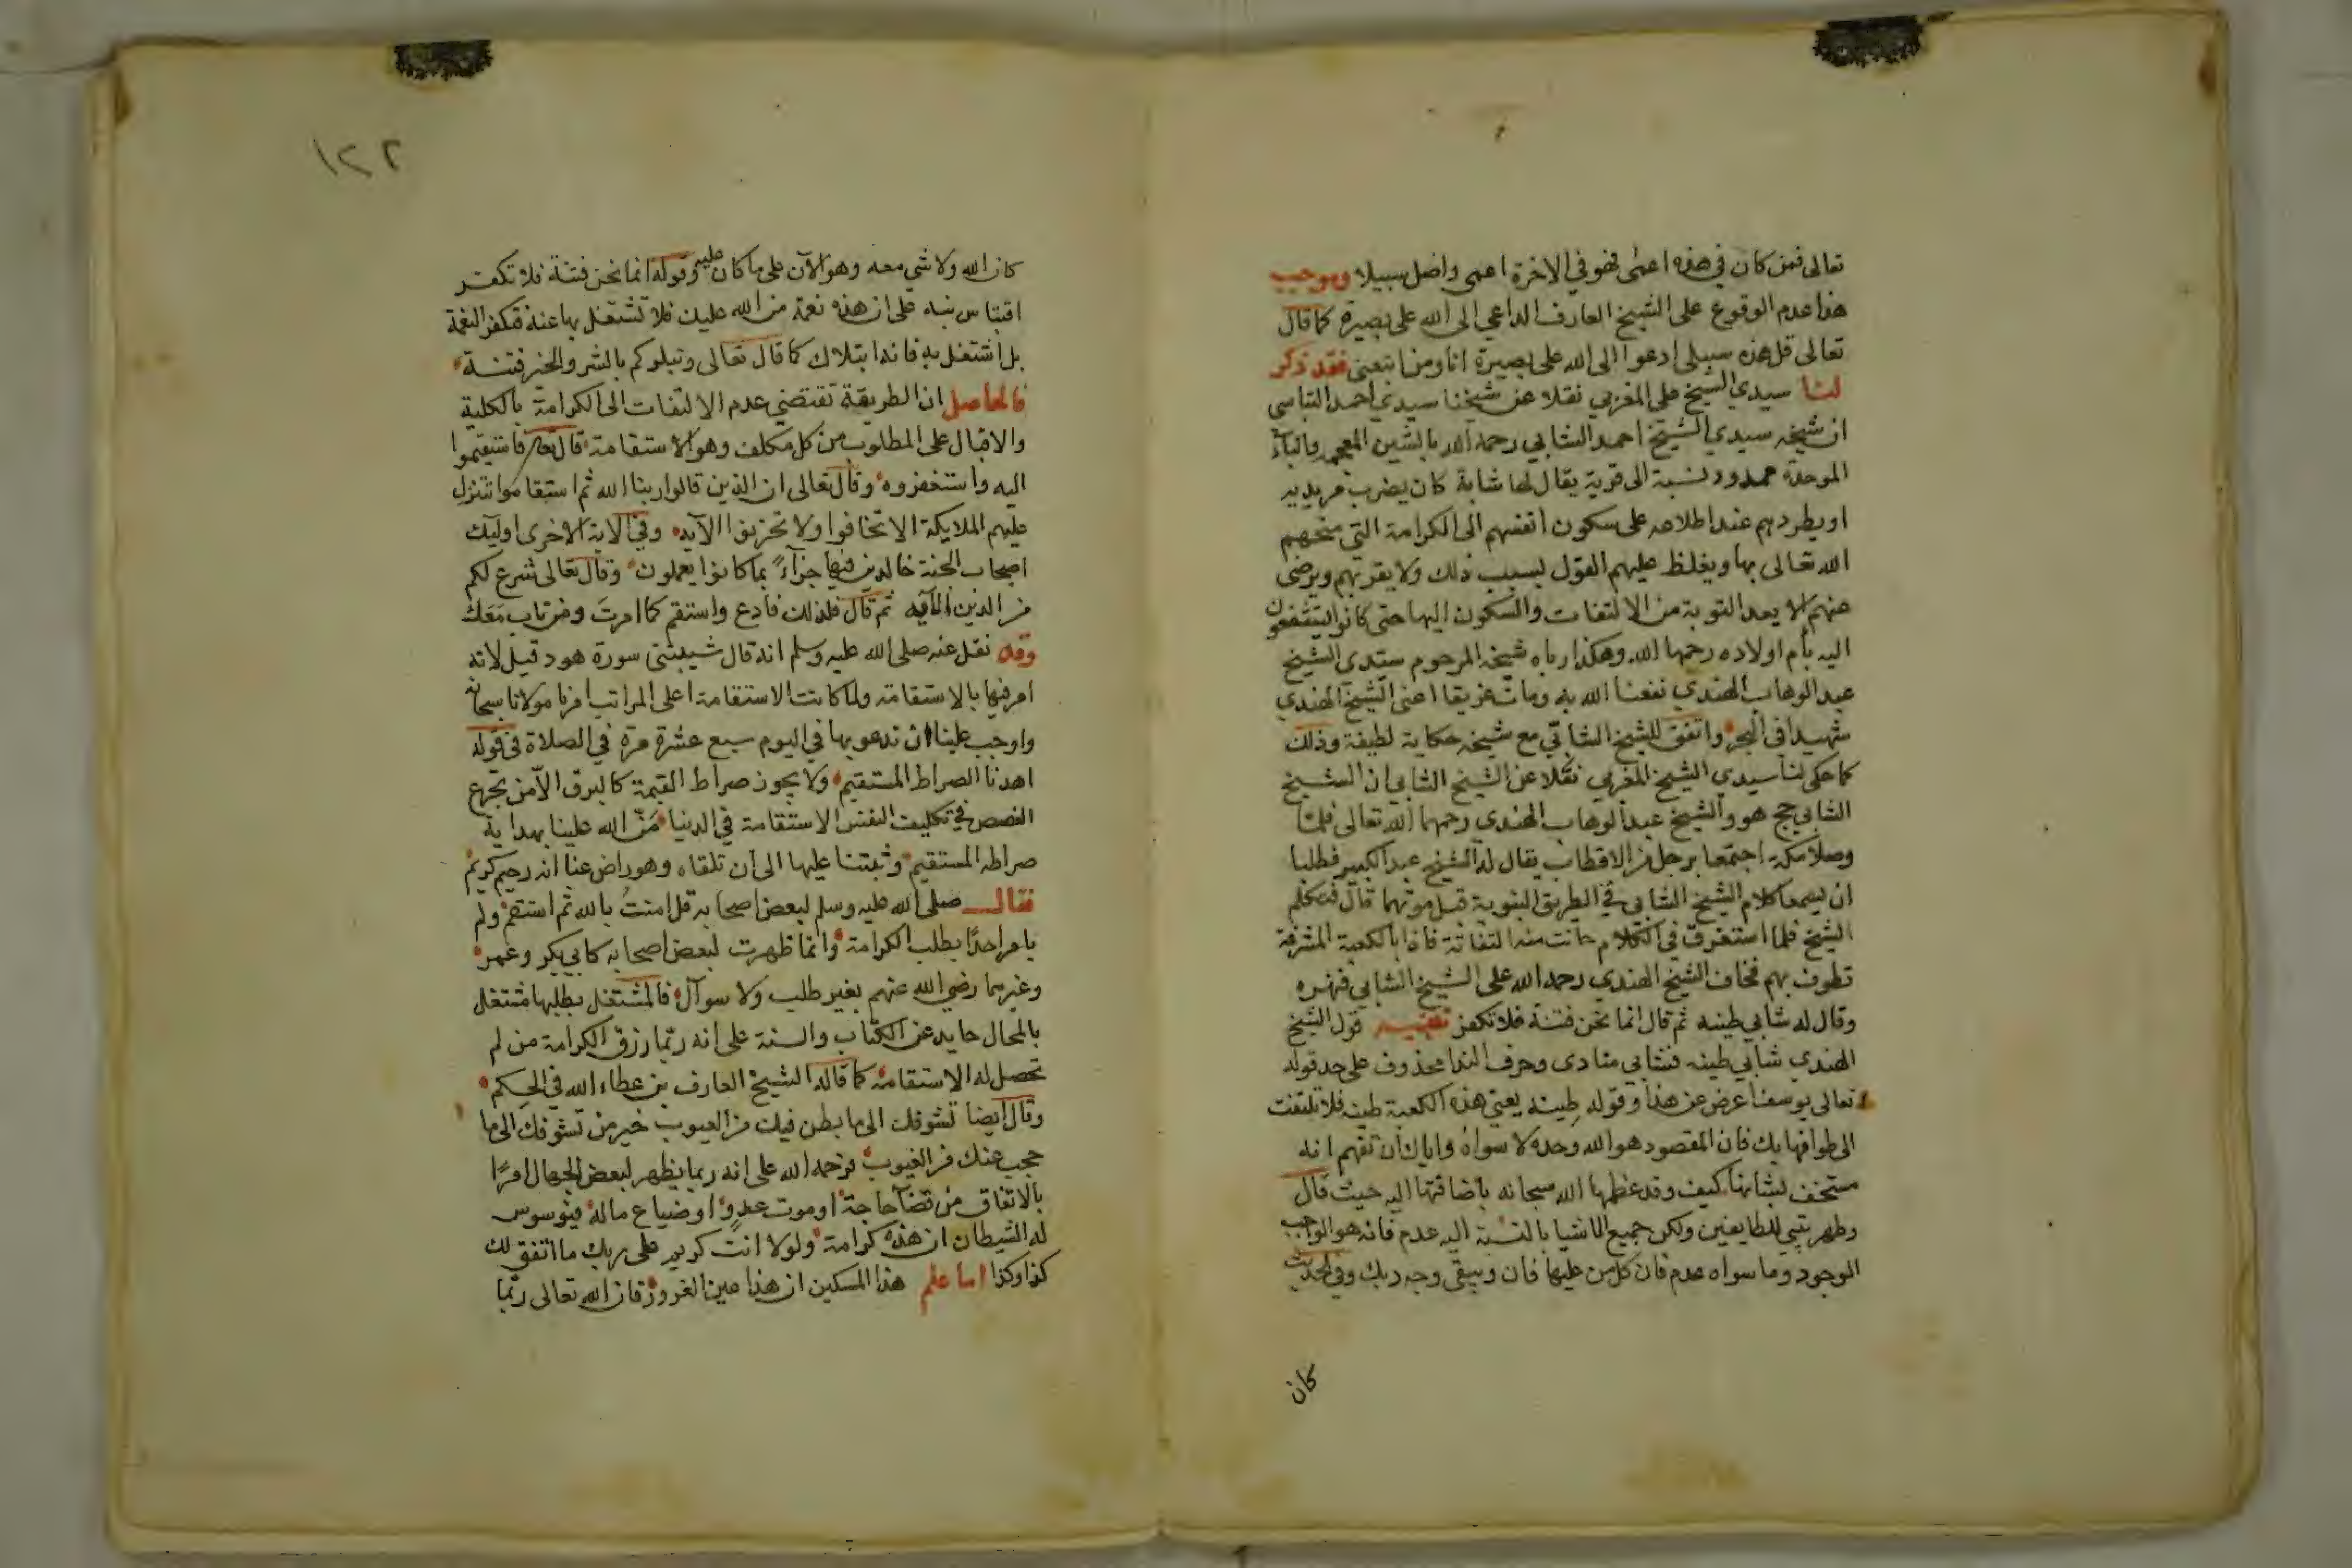 تعالى فمن كان في هذه اعمى فهو في الاخرة اعمى واضل سبيلا وبوجب
هذا عدم الوقوع على الشيخ العارف الداعي الى الله على بصيرة كما قال
تعالى قل هذه سبيلي ادعوا الى الله على بصيرة انا ومن اتبعني فقد ذكر
لنا سيدي الشيخ على المغربي نقلا عن شيخنا سيدي احمد التباسي
ان شيخه سيدي الشيخ احمد الشابي رحمه الله بالشين المعجمه والباء
الموحدة ممدود نسبة الى قرية يقال لها شابة كان يضرب مريديه
او يطردهم عند اطلاعه على سكون انفسهم الى الكرامة التي منحهم
الله تعالى بها ويغلظ عليهم القول بسبب ذلك ولا يقربهم ويرضى
عنهم الا بعد التوبة من الالتفات والسكون اليها حتى كانوا يتشفعون
اليه بأم اولاده رحمها الله وهكذا رباه شيخه المرحوم سيدي الشيخ
عبد الوهاب الهندي نفعنا الله به ومات غريقا اعنى الشيخ الهندي
شهيدا في البحر واتفق للشيخ الشابي مع شيخه حكاية لطيفة وذلك
كما حكى لنا سيدي الشيخ المغربي نقلا عن الشيخ الشابي ان الشيخ
الشابي حج هو والشيخ عبد الوهاب الهندي رحمهما الله تعالى فلما
وصلا مكة اجتمعا برجل من الاقطاب يقال له الشيخ عبد الكبير فطلبا
ان يسمعا كلام الشيخ الشابي في الطريق النبوية قبل موتهما قال فتكلم
الشيخ فلما استغرق في الكلام حانت منه التفاتة فاذا بالكعبة المشرفة
تطوف بهم فخاف الشيخ الهندي رحمه الله على الشيخ الشابي فنهره
وقال له شابي طينه ثم قال انما نحن فتنة فلا تكفر تنبيه قول الشيخ
الهندي شابي طينه فشابي منادى وحرف الندا محذوف على حد قوله
تعالى يوسف اعرض عن هذا وقوله طينه يعني هذه الكعبة طينه فلا تلتفت
الى طوافها بك فان المقصود هو الله وحده لا سواه واياك ان تفهم انه
مستخف بشانها كيف وقد عظمها الله سبحانه باضافتها اليه حيث قال
وطهر بيتي للطايفين ولكن جميع الاشيا بالنسبة اليه عدم فانه هو الواجب
الموجود وما سواه عدم فان كل من عليها فان ويبقى وجه ربك وفي الحديث
كان
١٢٢
كان الله ولا شي معه وهو الآن على ما كان عليه وقوله انما نحن فتنة فلا تكفر
اقتباس نبه على ان هذه نعمة من الله عليك فلا تشتغل بها عنه فتكفر النعمة
بل اشتغل به فانه ابتلاك كما قال تعالى ونبلوكم بالشر والخير فتنة
فالحاصل ان الطريقة تقتضي عدم الالتفات الى الكرامة بالكلية
والاقبال على المطلوب من كل مكلف وهو الاستقامة قال تعالى فاستقيموا
اليه واستغفروه وقال تعالى ان الذين قالوا ربنا الله ثم استقاموا تتنزل
عليهم الملايكة الا تخافوا ولا تحزنوا الآيه وفي الاية الاخرى اوليك
اصحاب الجنة خالدين فيها جزاءً بما كانوا يعملون وقال تعالى شرع لكم
من الدين الآيه ثم قال فلذلك فادع واستقم كما امرت ومن تاب معك
وقد نقل عنه صلى الله عليه وسلم انه قال شيبتني سورة هود قيل لانه
امر فيها بالاستقامة ولما كانت الاستقامة اعلى المراتب امرنا مولانا سبحانه
واوجب علينا ان ندعو بها في اليوم سبع عشرة مرة في الصلاة في قوله
اهدنا الصراط المستقيم ولا يجوز صراط القيمة كالبرق الا من تجرع
الغصص في تكليف النفس الاستقامة في الدنيا منّ الله علينا بهداية
صراطه المستقيم وثبتنا عليها الى ان تلقاه وهو راض عنا انه رحيم كريم
فقال صلى الله عليه وسلم لبعض اصحابه قل امنت بالله ثم استقم ولم
يامر احدًا بطلب الكرامة وانما ظهرت لبعض اصحابه كابي بكر وعمر
وغيرهما رضي الله عنهم بغير طلب ولا سوآل فالمشتغل بطلبها مشتغل
بالمحال حايد عن الكتاب والسنة على انه ربما رزق الكرامة من لم
تحصل له الاستقامة كما قاله الشيخ العارف بن عطاء الله في الحِكم
وقال ايضا تشوفك الى ما بطن فيك من العيوب خير من تشوفك الى ما
حجب عنك من الغيوب فرحمه الله على انه ربما يظهر لبعض الجهال امرًا
بالاتفاق من قضآ حاجة او موت عدوٍ او ضياع ماله فيوسوس
له الشيطان ان هذه كرامة ولولا انت كريم على ربك ما اتفق لك
كذا وكذا اما علم هذا المسكين ان هذا عين الغرور فان الله تعالى ربما